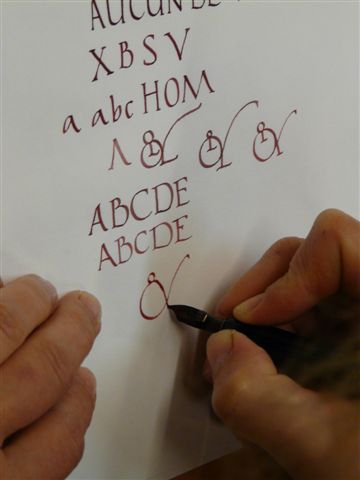 AUCUN DE
X B S V
a abc HOM
Λ & & &
ABCDE
ABCDE
&